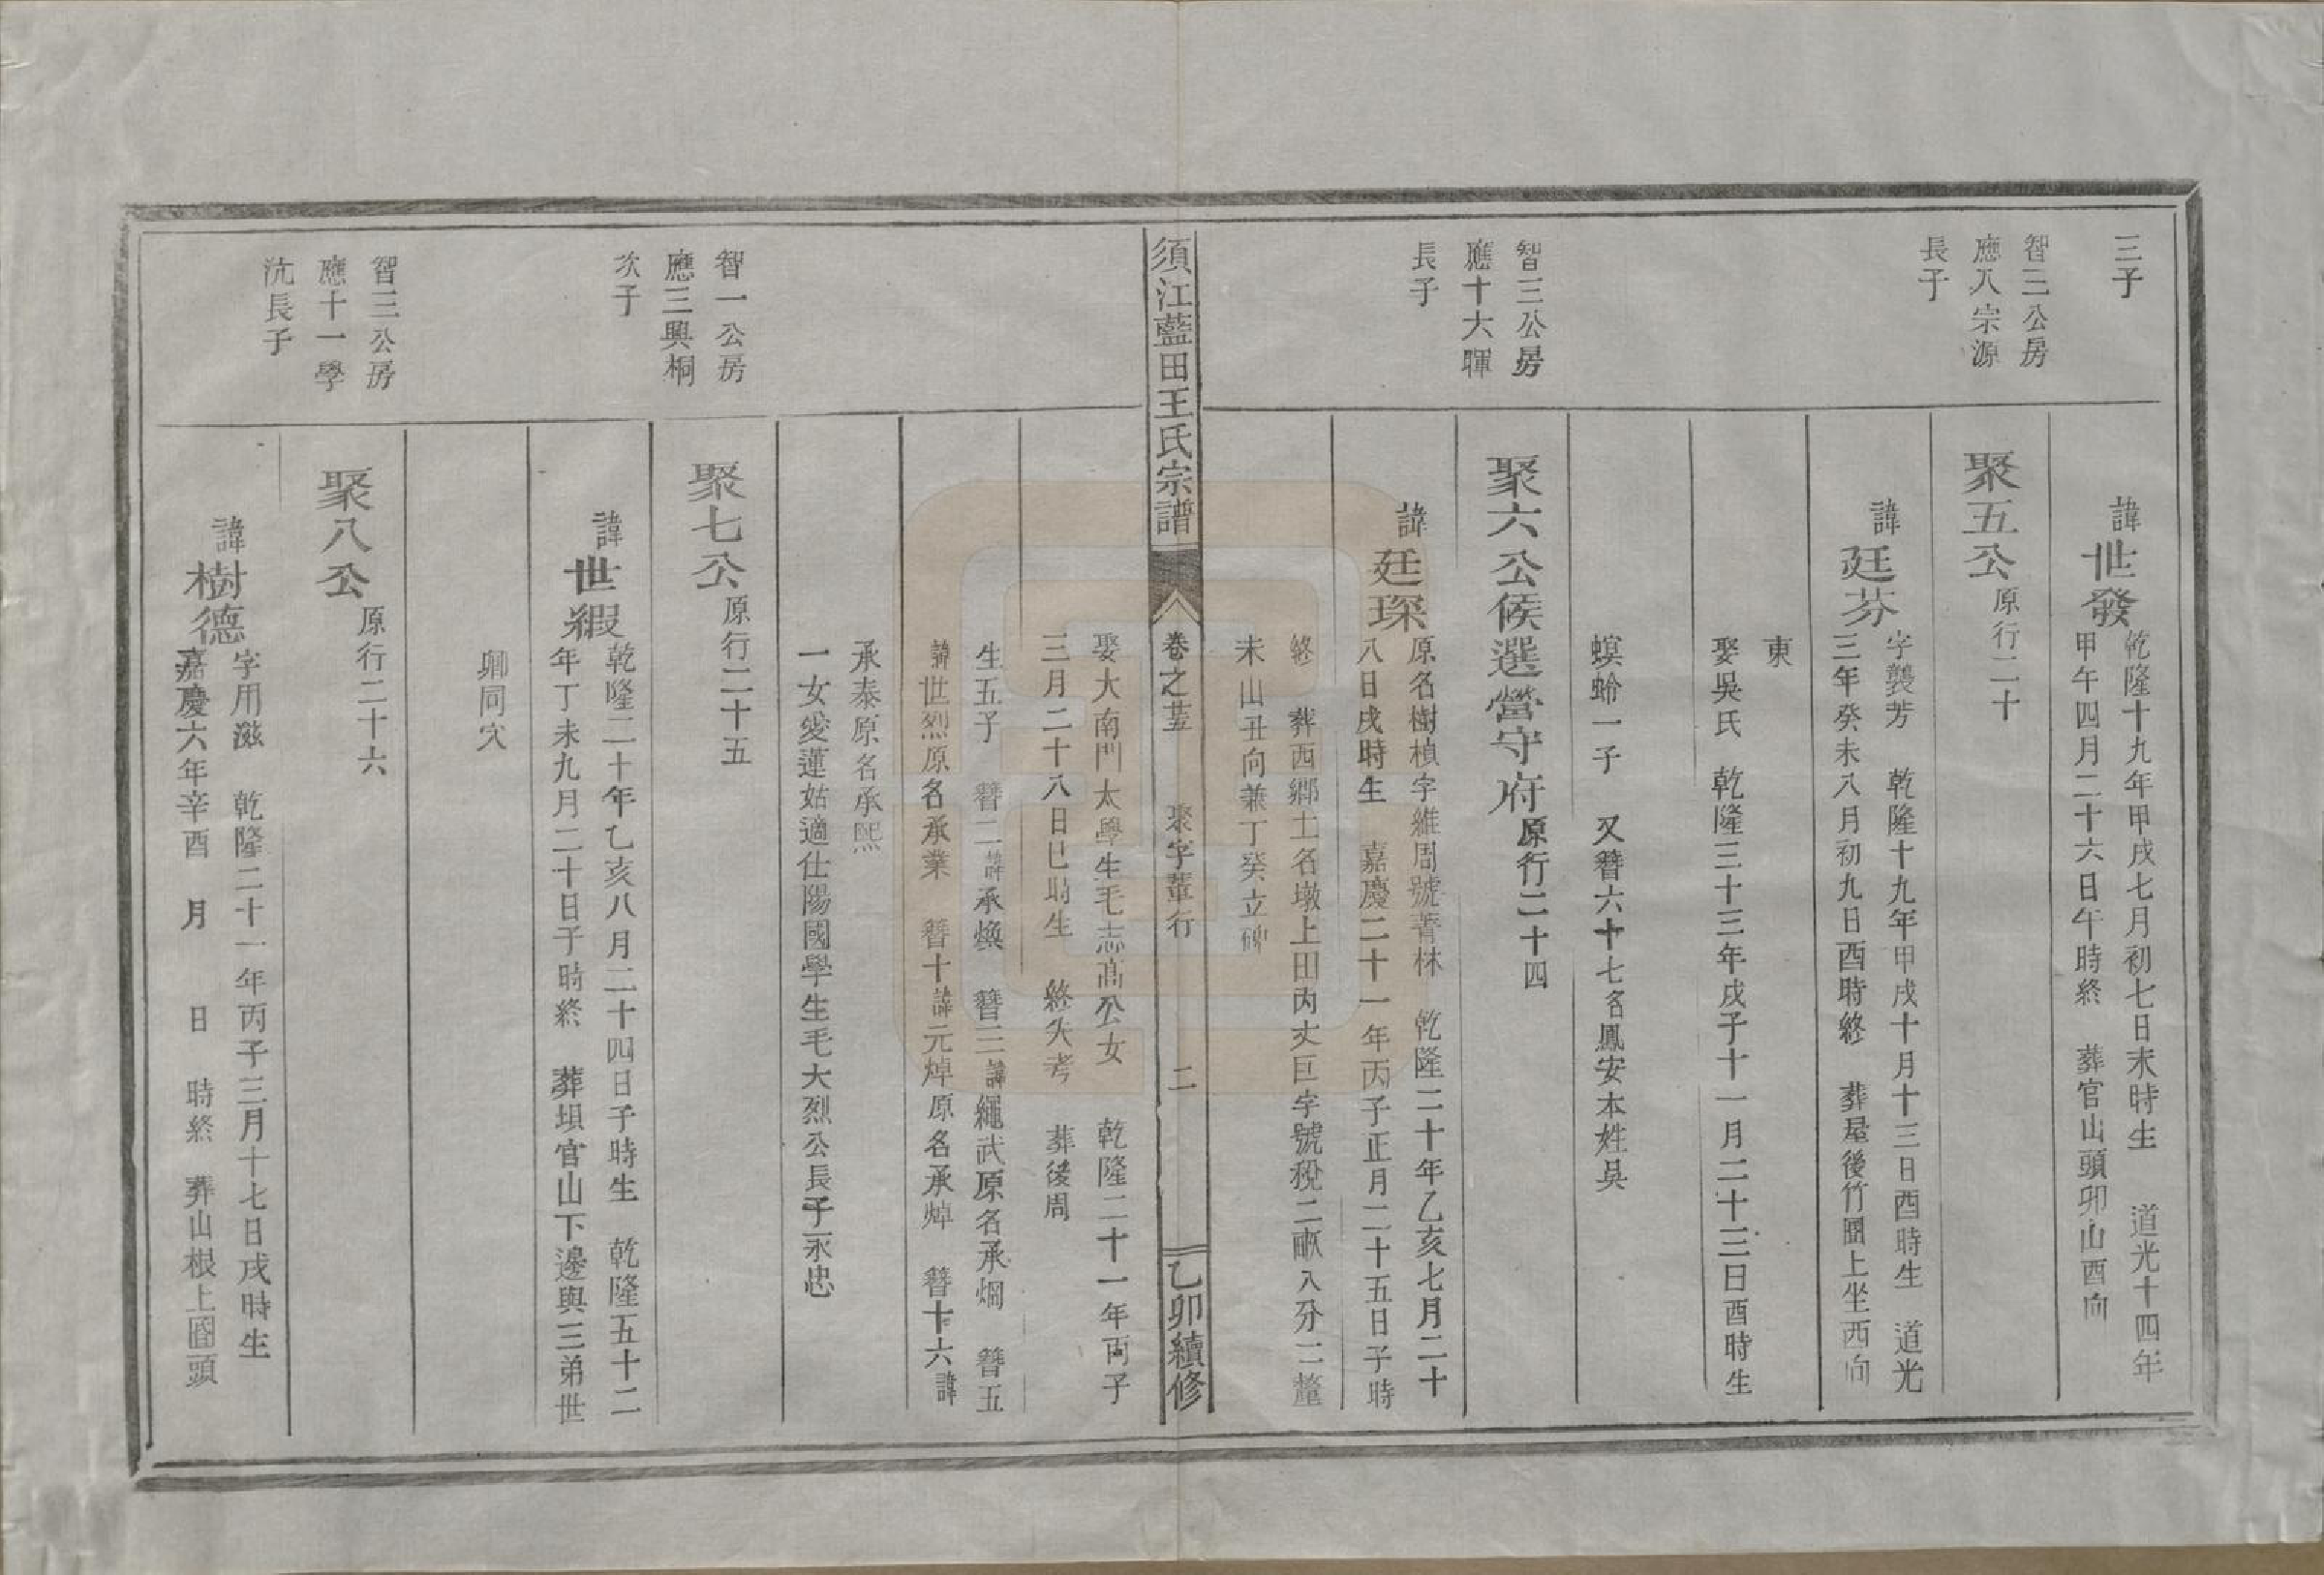 三子
諱世發
乾隆十九年甲戌七月初七日未時生　道光十四年
甲午四月二十六日午時終　葬官山頭卯山酉向
智三公房
應八宗源
長子
聚五公原行二十
諱廷芬
字襲芳　乾隆十九年甲戌十月十三日酉時生　道光
三年癸未八月初九日酉時終　葬屋後竹園上坐西向
東
娶吳氏　乾隆三十三年戊子十一月二十三日酉時生
螟蛉一子　又簪六十七名鳳安本姓吳
智三公房
應十大暉
長子
聚六公候選營守府原行二十四
諱廷琛
原名樹楨字維周號菁林　乾隆二十年乙亥七月二十
八日戌時生　嘉慶二十一年丙子正月二十五日子時
終　葬西鄉土名墩上田內丈巨字號稅二畝八分二釐
未山丑向兼丁癸立碑
須江藍田王氏宗譜
卷之　聚字輩行　二
乙卯續修
娶大南門太學生毛志高公女　乾隆二十一年丙子
三月二十八日巳時生　終失考　葬後周
生五子　簪二諱承煥　簪三諱繩武原名承烱　簪五
諱世烈原名承業　簪十諱元焯原名承焯　簪十六諱
承泰原名承熙
一女愛蓮姑適仕陽國學生毛大烈公長子永忠
智一公房
應三興桐
次子
聚七公原行二十五
諱世縀
乾隆二十年乙亥八月二十四日子時生　乾隆五十二
年丁未九月二十日子時終　葬垻官山下邊與三弟世
卿同穴
智三公房
應十一學
沆長子
聚八公原行二十六
諱樹德
字用滋　乾隆二十一年丙子三月十七日戌時生
嘉慶六年辛酉　月　日　時終　葬山根上園頭